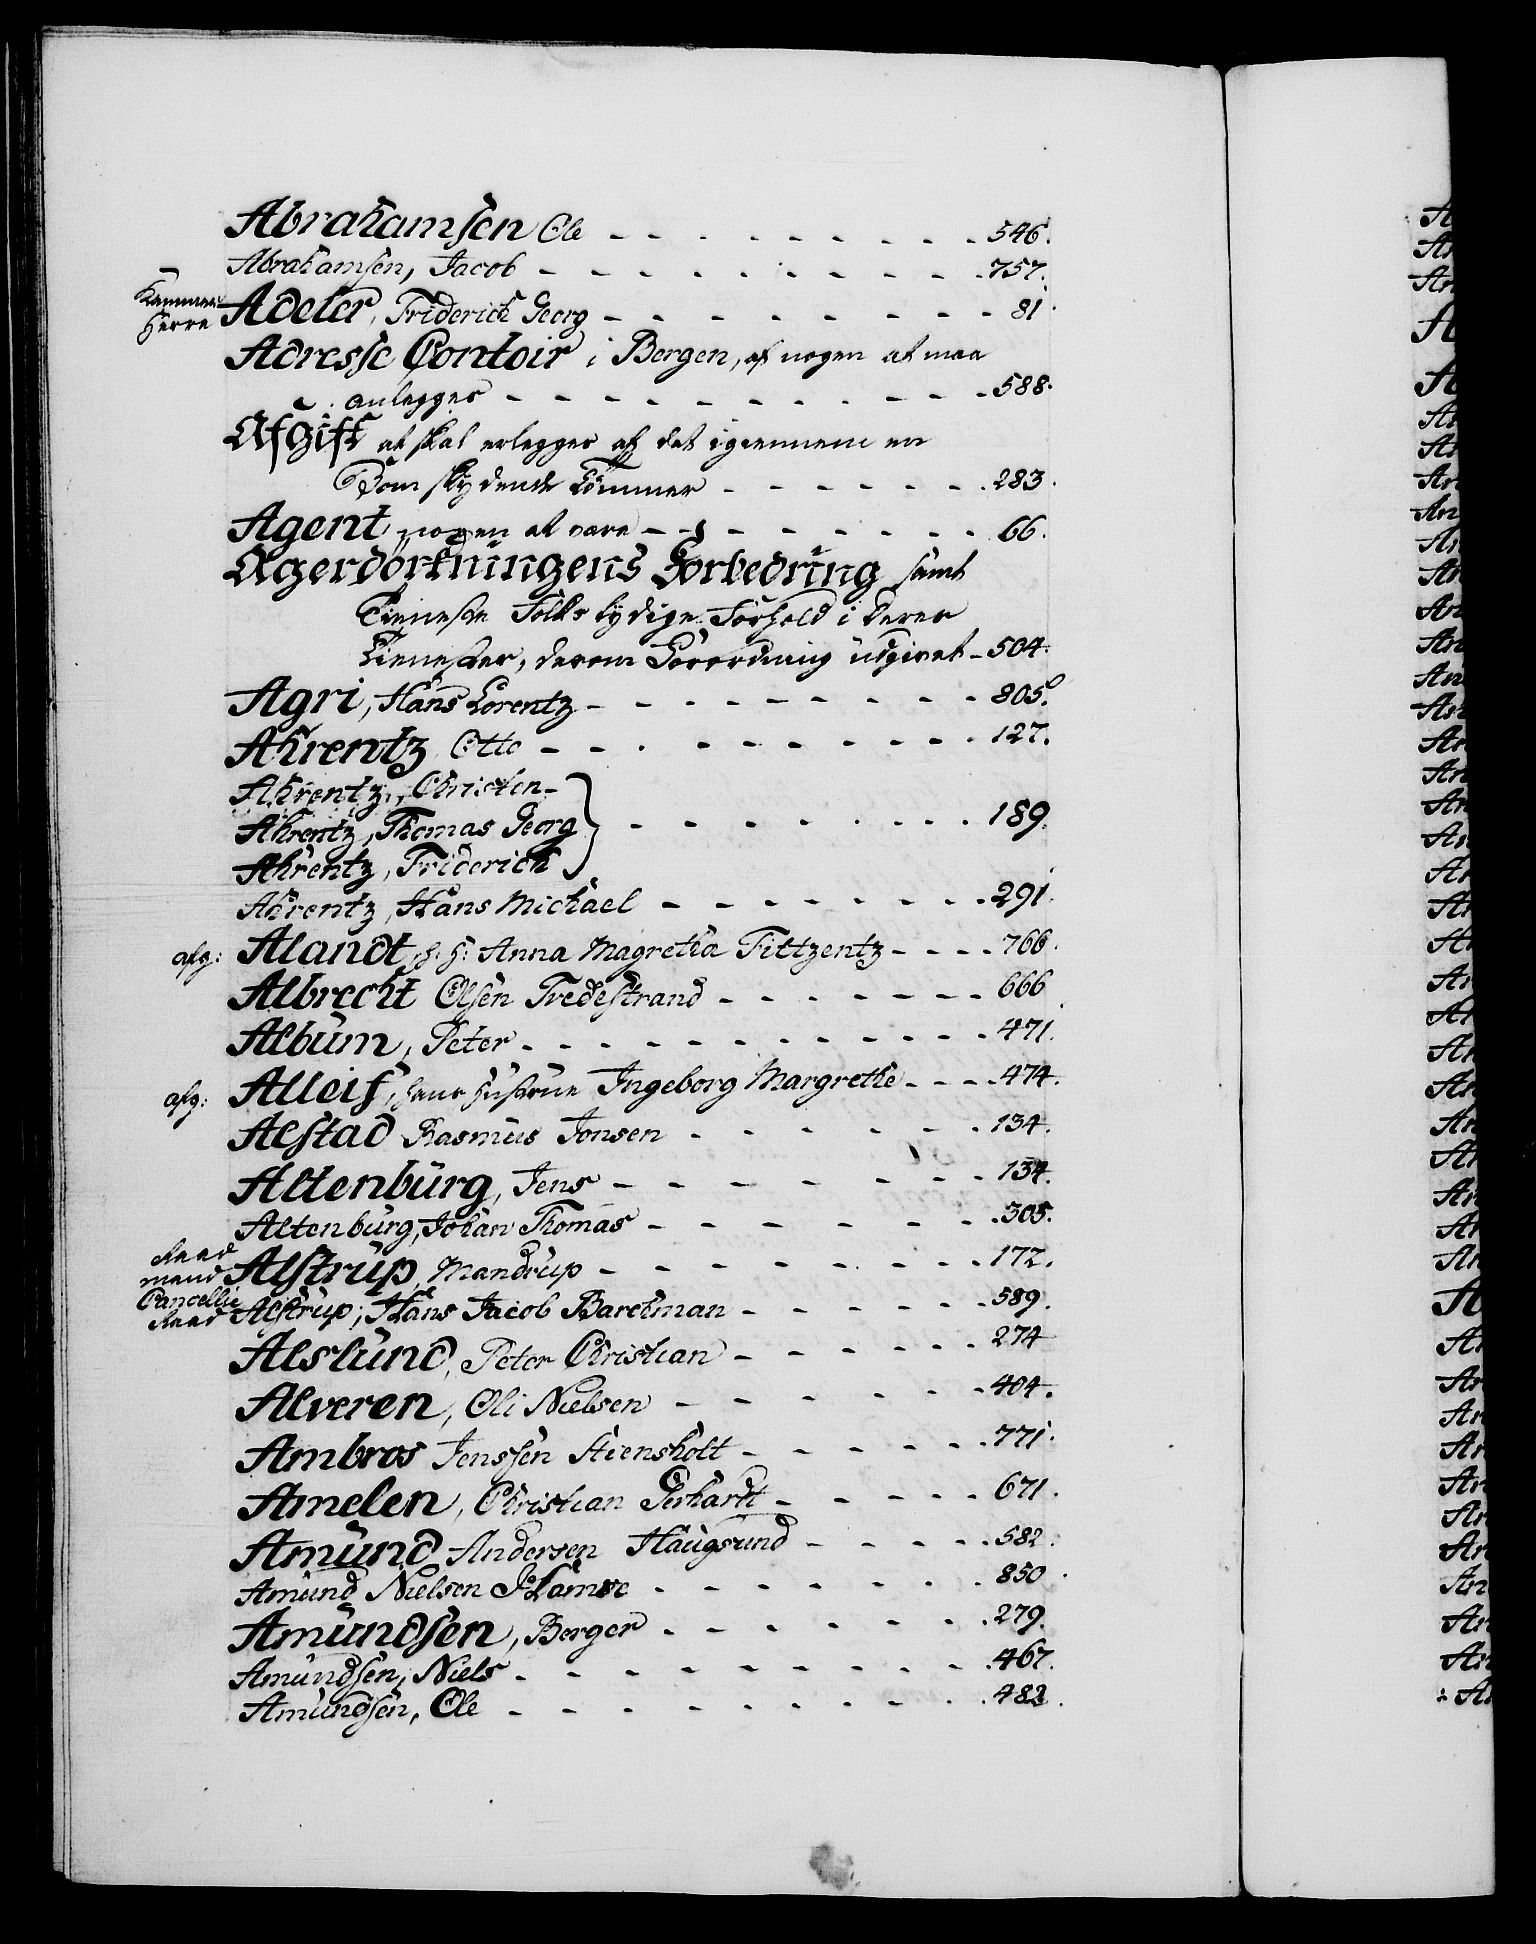 Abrahamsen Ole - - - - - - - - - 546.
Abrahamsen, Jacob - - - - - - - - - 757.
Kammer Herre Adeler, Friderich Georg - - - - - - - - - 81.
Adresse Contoir i Bergen, af nogen at maa
anlegges - - - - - - - - - - - 588.
Afgift at skal erlegges af det igiennem en
Dom skydende Tömmer - - - - - - 283.
Agent, nogen at være - - - - - - - - 66.
Agerdörkningens Forbedring samt
Tieneste Folks lydige Forhold i deres
Tienester, derom Forordning udgivet - 504.
Agri, Hans Lorentz - - - - - - - - - 805.
Ahrentz Otto - - - - - - - - - - 127.
Ahrentz, Christen
Ahrentz, Thomas Georg } - - - - - - - - 189.
Ahrentz, Friderich
Ahrentz, Hans Michael - - - - - - - - 291.
afg: Alandt, h. H: Anna Magretha Fittzentz - - - - 766.
Albrecht Olsen Tredestrand - - - - - - - - 666
Album, Peter - - - - - - - - - - - 471.
afg: Alleif, hans Hustrue Ingeborg Margrethe - - - - 474.
Alstad Rasmus Jonsen - - - - - - - 134.
Altenburg, Jens - - - - - - - - 134.
Altenburg, Johan Thomas - - - - - - - - 305.
Raad mand Alstrup, Mandrup - - - - - - - - - 172.
Cancellie Raad Alstrup, Hans Jacob Barchman - - - - - - 589.
Alslund, Peter Christian - - - - - - 274
Alveren, Oli Nielsen - - - - - - 404.
Ambros Jenssen Stensholt - - - - - - 771.
Amelen, Christian Gerhardt - - - - - 671.
Amund Andersen Haugsund - - - - - 582.
Amund Nielsen - - - - - - - - 850.
Amundsen, Berger - - - - - - - 279.
Amundsen, Niels - - - - - - - - - 467.
Amundsen, Ole - - - - - - - - - 482.